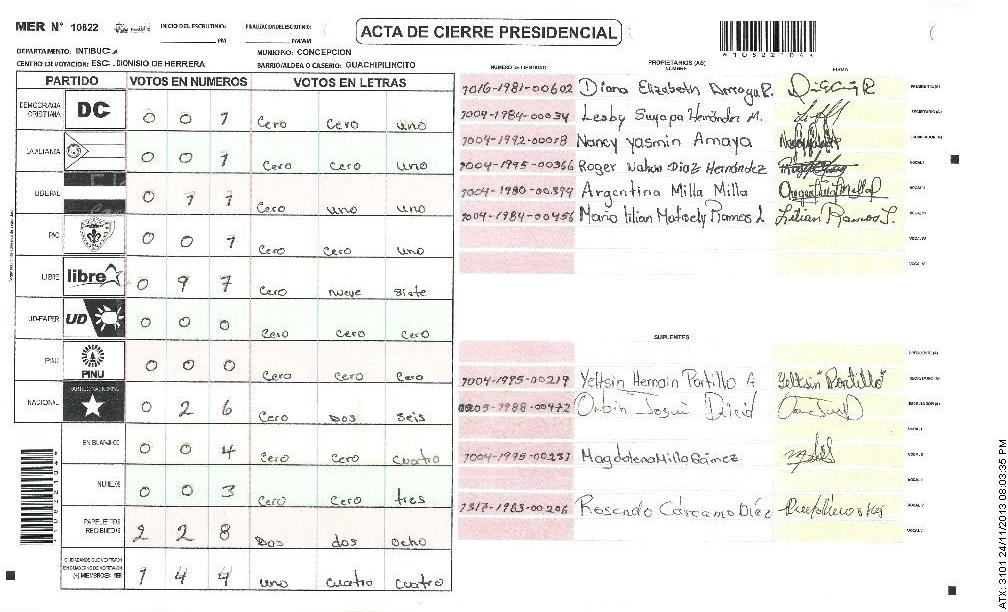 MER N° 10822
INICIO DEL ESCRUTINIO: PM
FINALIZACION DEL ESCRUTINIO: PM/AM
ACTA DE CIERRE PRESIDENCIAL
DEPARTAMENTO: INTIBUCA
MUNICIPIO: CONCEPCION
CENTRO DE VOTACION: ESC. DIONISIO DE HERRERA
BARRIO/ALDEA O CASERIO: GUACHIPILINCITO
PARTIDO VOTOS EN NUMEROS VOTOS EN LETRAS
DEMOCRACIA CRISTIANA DC 0 0 1 Cero Cero uno
LA ALIANZA 0 0 1 Cero Cero uno
LIBERAL 0 1 1 Cero uno uno
PAC 0 0 1 Cero Cero uno
LIBRE libre 0 9 7 Cero nueve siete
UD-FAPER UD 0 0 0 Cero Cero Cero
PINU PINU 0 0 0 Cero Cero Cero
NACIONAL 0 2 6 Cero Dos seis
EN BLANCO 0 0 4 Cero Cero cuatro
NULOS 0 0 3 Cero Cero tres
PAPELETAS RECIBIDAS 2 2 8 Dos dos ocho
1 4 4 uno cuatro cuatro
NUMERO DE IDENTIDAD
PROPIETARIOS (AS)
NOMBRE
FIRMA
1016-1981-00602 Diana Elizabeth PRESIDENTE (A)
1004-1984-00034 Lesby Suyapa Hernández M. SECRETARIO (A)
1004-1992-00078 Nancy Yasmin Amaya ESCRUTADOR (A)
1004-1995-00366 Roger Nahun Diaz Hernández VOCAL I
1004-1980-00394 Argentina Milla Milla VOCAL II
1004-1984-00456 Maria Lilian Ramos L. Lilian Ramos L. VOCAL III
VOCAL IV
VOCAL V
SUPLENTES
PRESIDENTE (A)
1004-1995-00219 Yeltsin Hernain Portillo A Yeltsin Portillo SECRETARIO (A)
ESCRUTADOR (A)
VOCAL I
1004-1975-00237 Magdalena Milla Gómez VOCAL II
1317-1983-00206 Rosendo Cárcamo Díaz VOCAL IV
VOCAL V
ATX: 3101 24/11/2013 08:03:35 PM